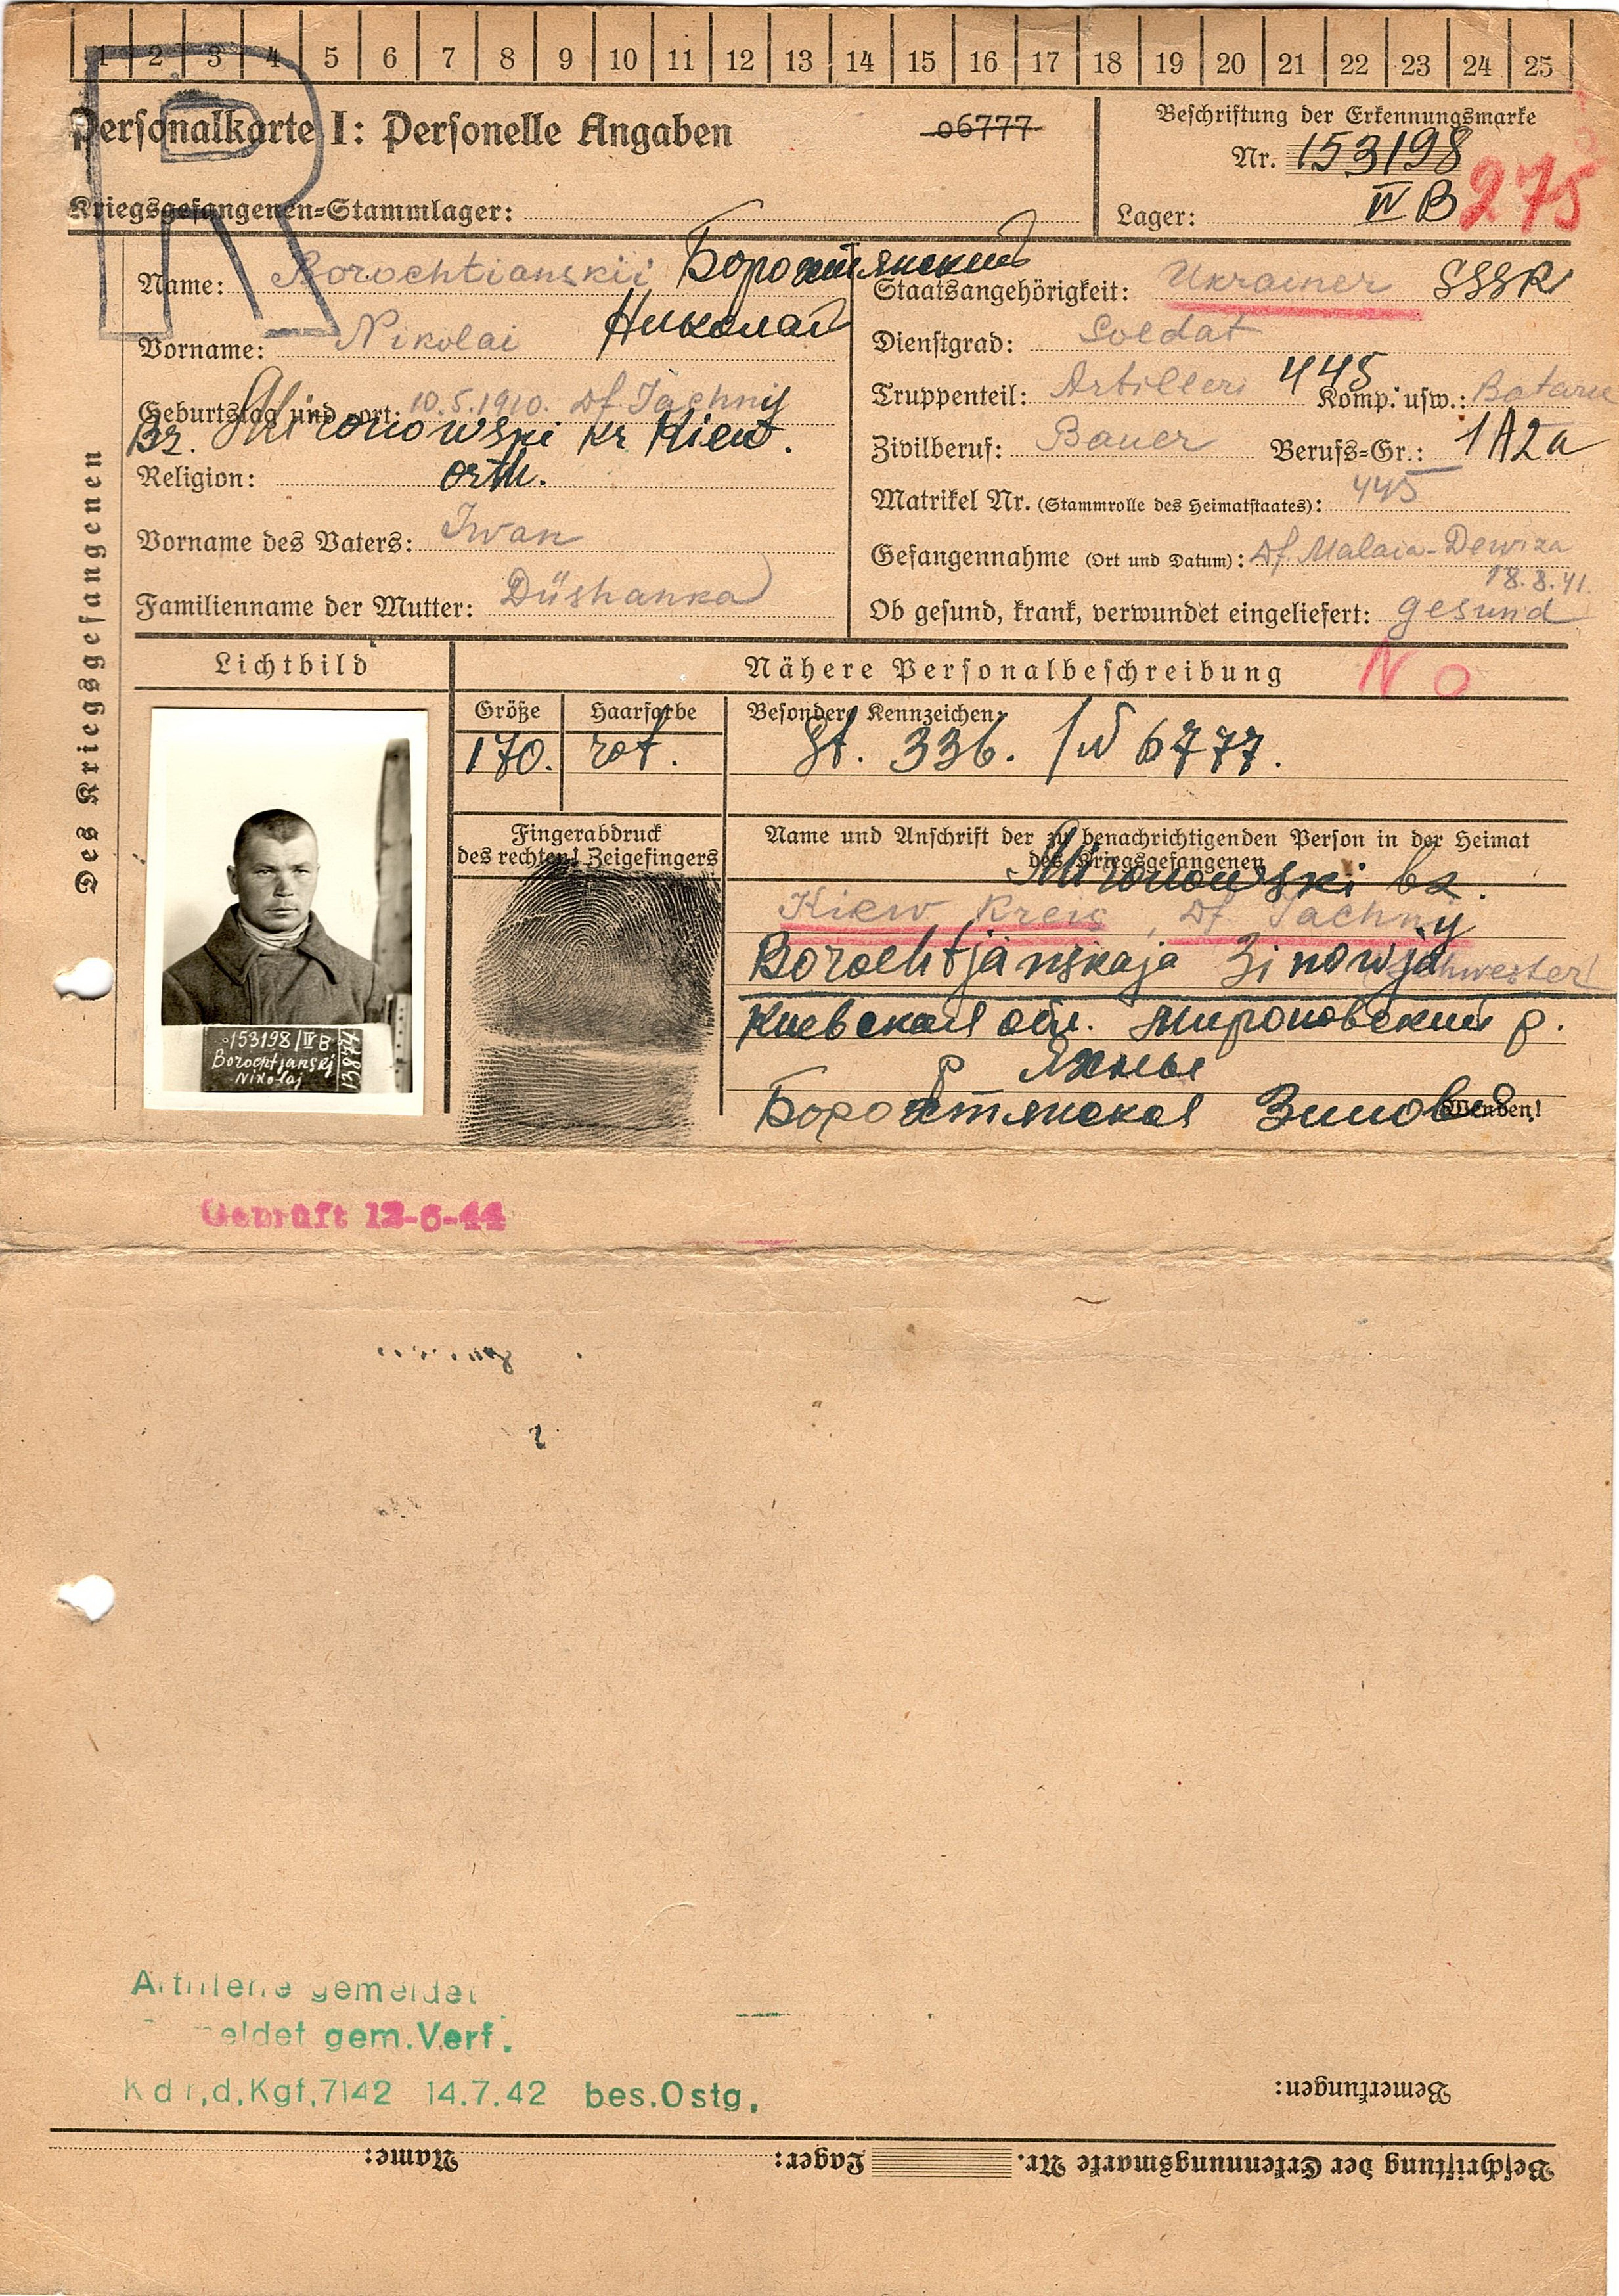 1 2 3 4 5 6 7 8 9 10 11 12 13 14 15 16 17 18 19 20 21 22 23 24 25
R
Personalkarte I: Personelle Angaben
06777
Kriegsgefangenen=Stammlager:
Beschriftung der Erkennungsmarke
Nr. 153198
Lager: IV B
275
Des Kriegsgefangenen
Name: Borochtianskii Борохтянский
Vorname: Nikolai Николай
Geburtstag und =ort: 10.5.1910. Df Jachnij
Bz. Mironowski kr Kiew.
Religion: orth.
Vorname des Vaters: Iwan
Familienname der Mutter: Düshanka
Staatsangehörigkeit: Ukrainer SSSR
Dienstgrad: Soldat
Truppenteil: Artilleri 445 Komp. usw.: Batarie
Zivilberuf: Bauer Berufs=Gr.: 1A2a
Matrikel Nr. (Stammrolle des Heimatstaates): 445
Gefangennahme (Ort und Datum): Df. Malaia-Dewiza
18.8.41.
Ob gesund, krank, verwundet eingeliefert: gesund
Lichtbild
153198/IV B
Borochtjanskj
Nikolaj
Nähere Personalbeschreibung
N O
Größe
170.
Haarfarbe
rot.
Besondere Kennzeichen:
St. 336. /W 6777.
Fingerabdruck
des rechten! Zeigefingers
Name und Anschrift der zu benachrichtigenden Person in der Heimat
des Kriegsgefangenen
Mironowski bz.
Kiew Kreis, Df. Jachnij
Borochtjanskaja Zinowja Schwester
Киевская обл. Мироновский р.
Р Яхные
Борохтянская Зиновия
Wenden!
Geprüft 12-6-44
Artillerie gemeldet
gem.Verf.
Kdr,d,Kgf,7142 14.7.42 bes.Ostg.
Bemerkungen:
Beschriftung der Erkennungsmarke Nr. Lager: Name: